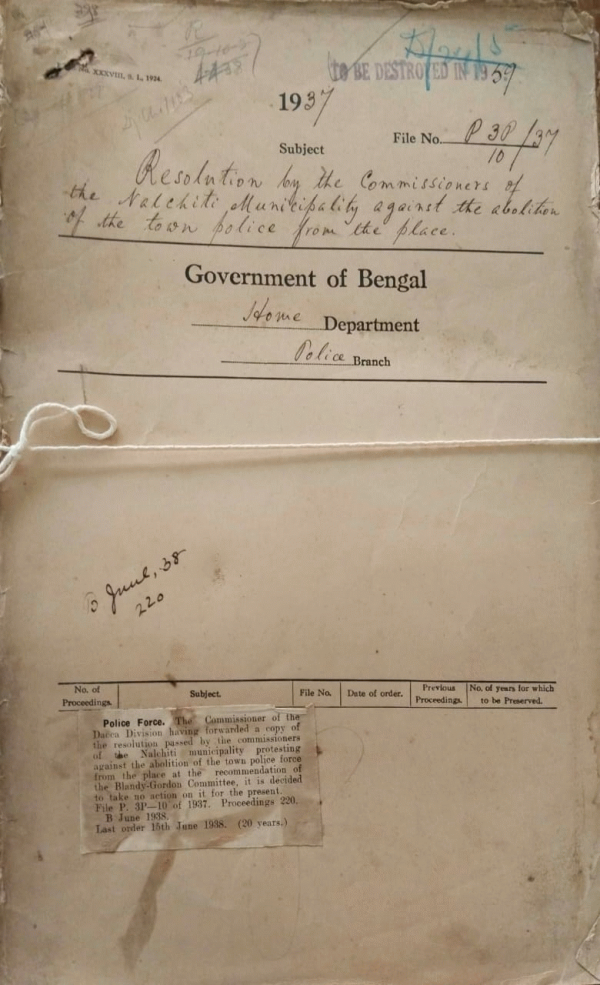 XXXVIII, s. 1, 1934.
TO BE DESTROYED IN 1959
1937
File No. P 3P/37
10
Subject
Resolution by the Commissioners of
the Nalchiti Municipality against the abolition
of the town police from the place.
Government of Bengal
Home Department
Police Branch
B June, 38
220
No. of Proceedings. Subject. File No. Date of order. Previous Proceedings. No. of years for which to be Preserved.
Police Force. The Commissioner of the
Dacca Division having forwarded a copy of
the resolution passed by the commissioners
of the Nalchiti municipality protesting
against the abolition of the town police force
from the place at the recommendation of
the Blandy-Gordon Committee, it is decided
to take no action on it for the present.
File P. 3P—10 of 1937. Proceedings 220.
B June 1938.
Last order 15th June 1938. (20 years.)